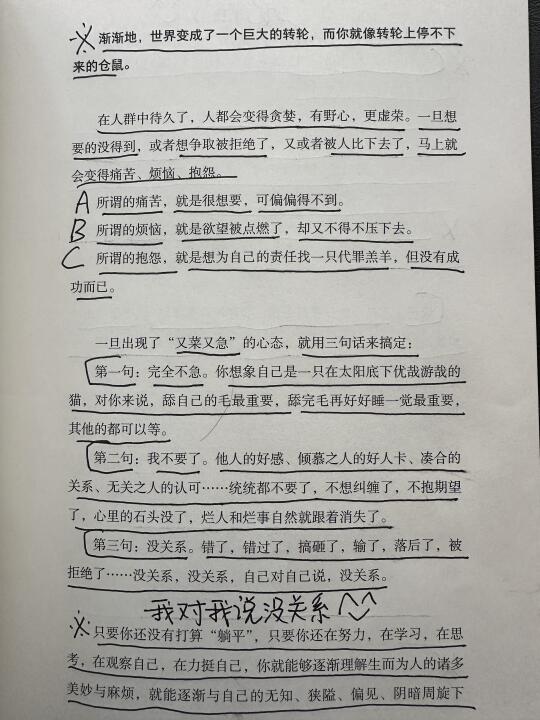 ※ 渐渐地，世界变成了一个巨大的转轮，而你就像转轮上停不下
来的仓鼠。
在人群中待久了，人都会变得贪婪，有野心，更虚荣。一旦想
要的没得到，或者想争取被拒绝了，又或者被人比下去了，马上就
会变得痛苦、烦恼、抱怨。
A 所谓的痛苦，就是很想要，可偏偏得不到。
B 所谓的烦恼，就是欲望被点燃了，却又不得不压下去。
C 所谓的抱怨，就是想为自己的责任找一只代罪羔羊，但没有成
功而已。
一旦出现了“又菜又急”的心态，就用三句话来搞定：
第一句：完全不急。你想象自己是一只在太阳底下优哉游哉的
猫，对你来说，舔自己的毛最重要，舔完毛再好好睡一觉最重要，
其他的都可以等。
第二句：我不要了。他人的好感、倾慕之人的好人卡、凑合的
关系、无关之人的认可……统统都不要了，不想纠缠了，不抱期望
了，心里的石头没了，烂人和烂事自然就跟着消失了。
第三句：没关系。错了，错过了，搞砸了，输了，落后了，被
拒绝了……没关系，没关系，自己对自己说，没关系。
我对我说没关系^^
※ 只要你还没有打算“躺平”，只要你还在努力，在学习，在思
考，在观察自己，在力挺自己，你就能够逐渐理解生而为人的诸多
美妙与麻烦，就能逐渐与自己的无知、狭隘、偏见、阴暗周旋下